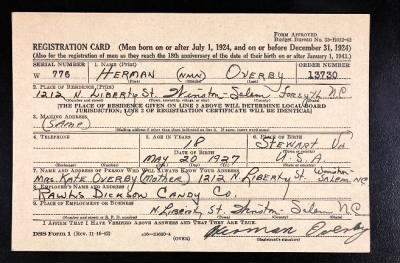 Form Approved
Budget Bureau No. 33-R012-42
REGISTRATION CARD (Men born on or after July 1, 1924, and on or before December 31, 1924)
(Also for the registration of men as they reach the 18th anniversary of the date of their birth on or after January 1, 1943.)
SERIAL NUMBER 1. NAME (Print) ORDER NUMBER
W 776 HERMAN (NMN) OVERBY 13730
(First) (Middle) (Last)
2. PLACE OF RESIDENCE (Print)
1212 N. LIBERTY ST. WINSTON-SALEM FORSYTH N.C.
(Number and street) (Town, township, village, or city) (County) (State)
[THE PLACE OF RESIDENCE GIVEN ON LINE 2 ABOVE WILL DETERMINE LOCAL BOARD
JURISDICTION; LINE 2 OF REGISTRATION CERTIFICATE WILL BE IDENTICAL]
3. MAILING ADDRESS
(SAME)
4. TELEPHONE 5. AGE IN YEARS 6. PLACE OF BIRTH
18 STEWART VA
DATE OF BIRTH
MAY 20 1927 U.S.A.
(Mo.) (Day) (Yr.)
7. NAME AND ADDRESS OF PERSON WHO WILL ALWAYS KNOW YOUR ADDRESS
MRS. KATE OVERBY (MOTHER) 1212 N. LIBERTY ST. WINSTON-SALEM, NC
8. EMPLOYER'S NAME AND ADDRESS
RAWLS DICKSON CANDY CO.
9. PLACE OF EMPLOYMENT OR BUSINESS
N. LIBERTY ST. WINSTON-SALEM N.C.
I AFFIRM THAT I HAVE VERIFIED ABOVE ANSWERS AND THAT THEY ARE TRUE.
DSS Form 1 (Rev. 11-16-42) (OVER) Herman Overby
(Registrant's signature)